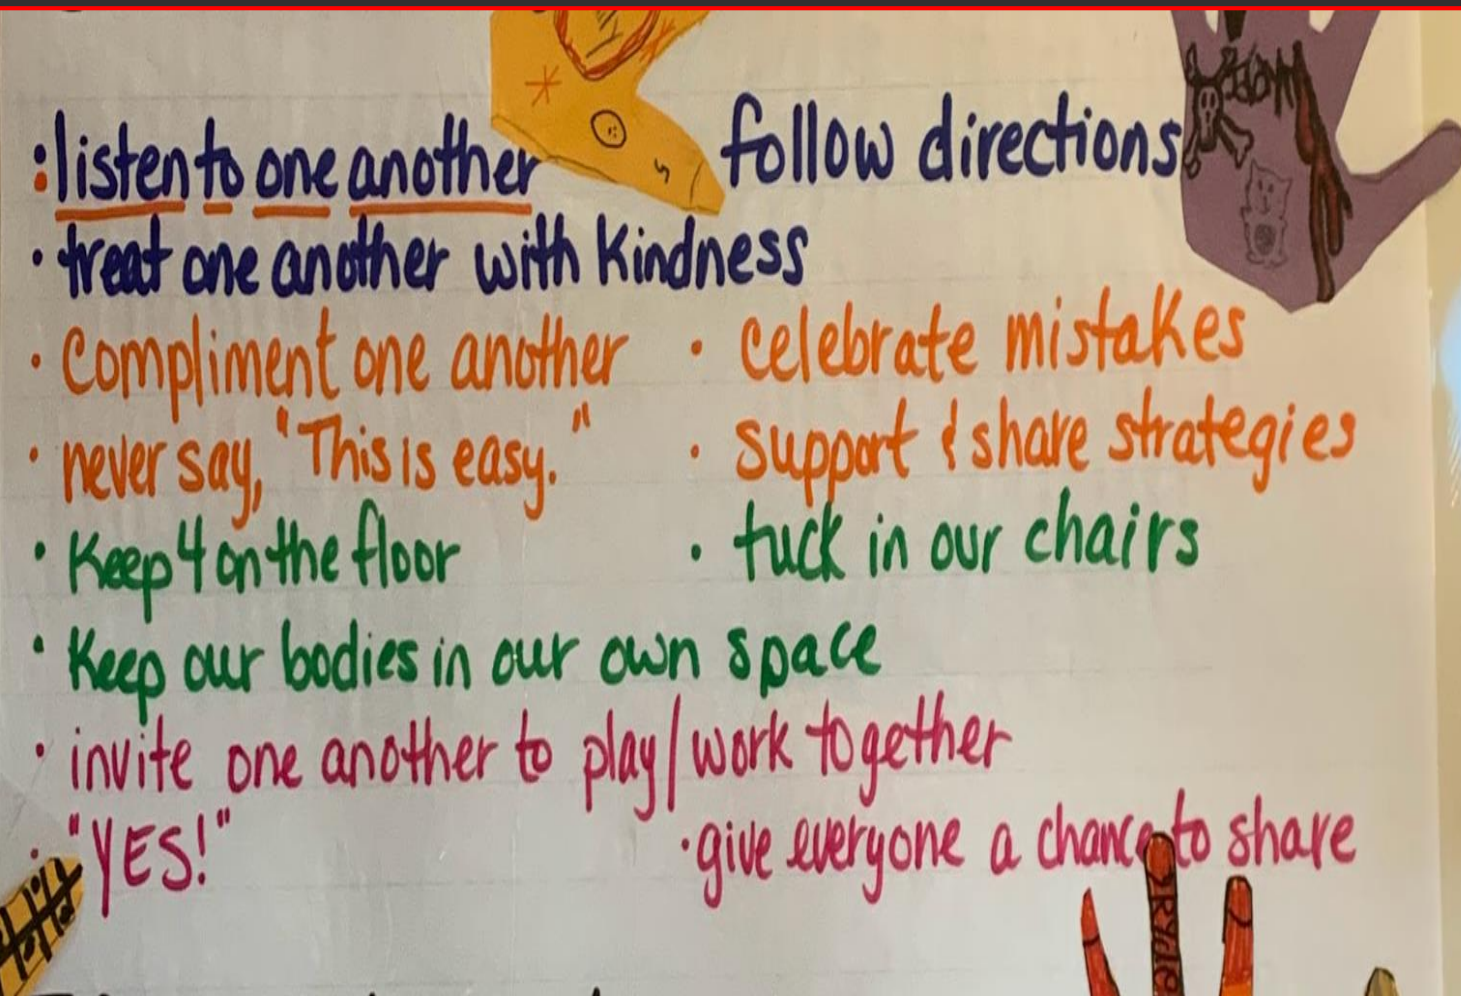 : listen to one another follow directions
· treat one another with kindness
· Compliment one another · celebrate mistakes
· never say, "This is easy." · support & share strategies
· Keep 4 on the floor · tuck in our chairs
· Keep our bodies in our own space
· invite one another to play/work together
· "YES!" · give everyone a chance to share